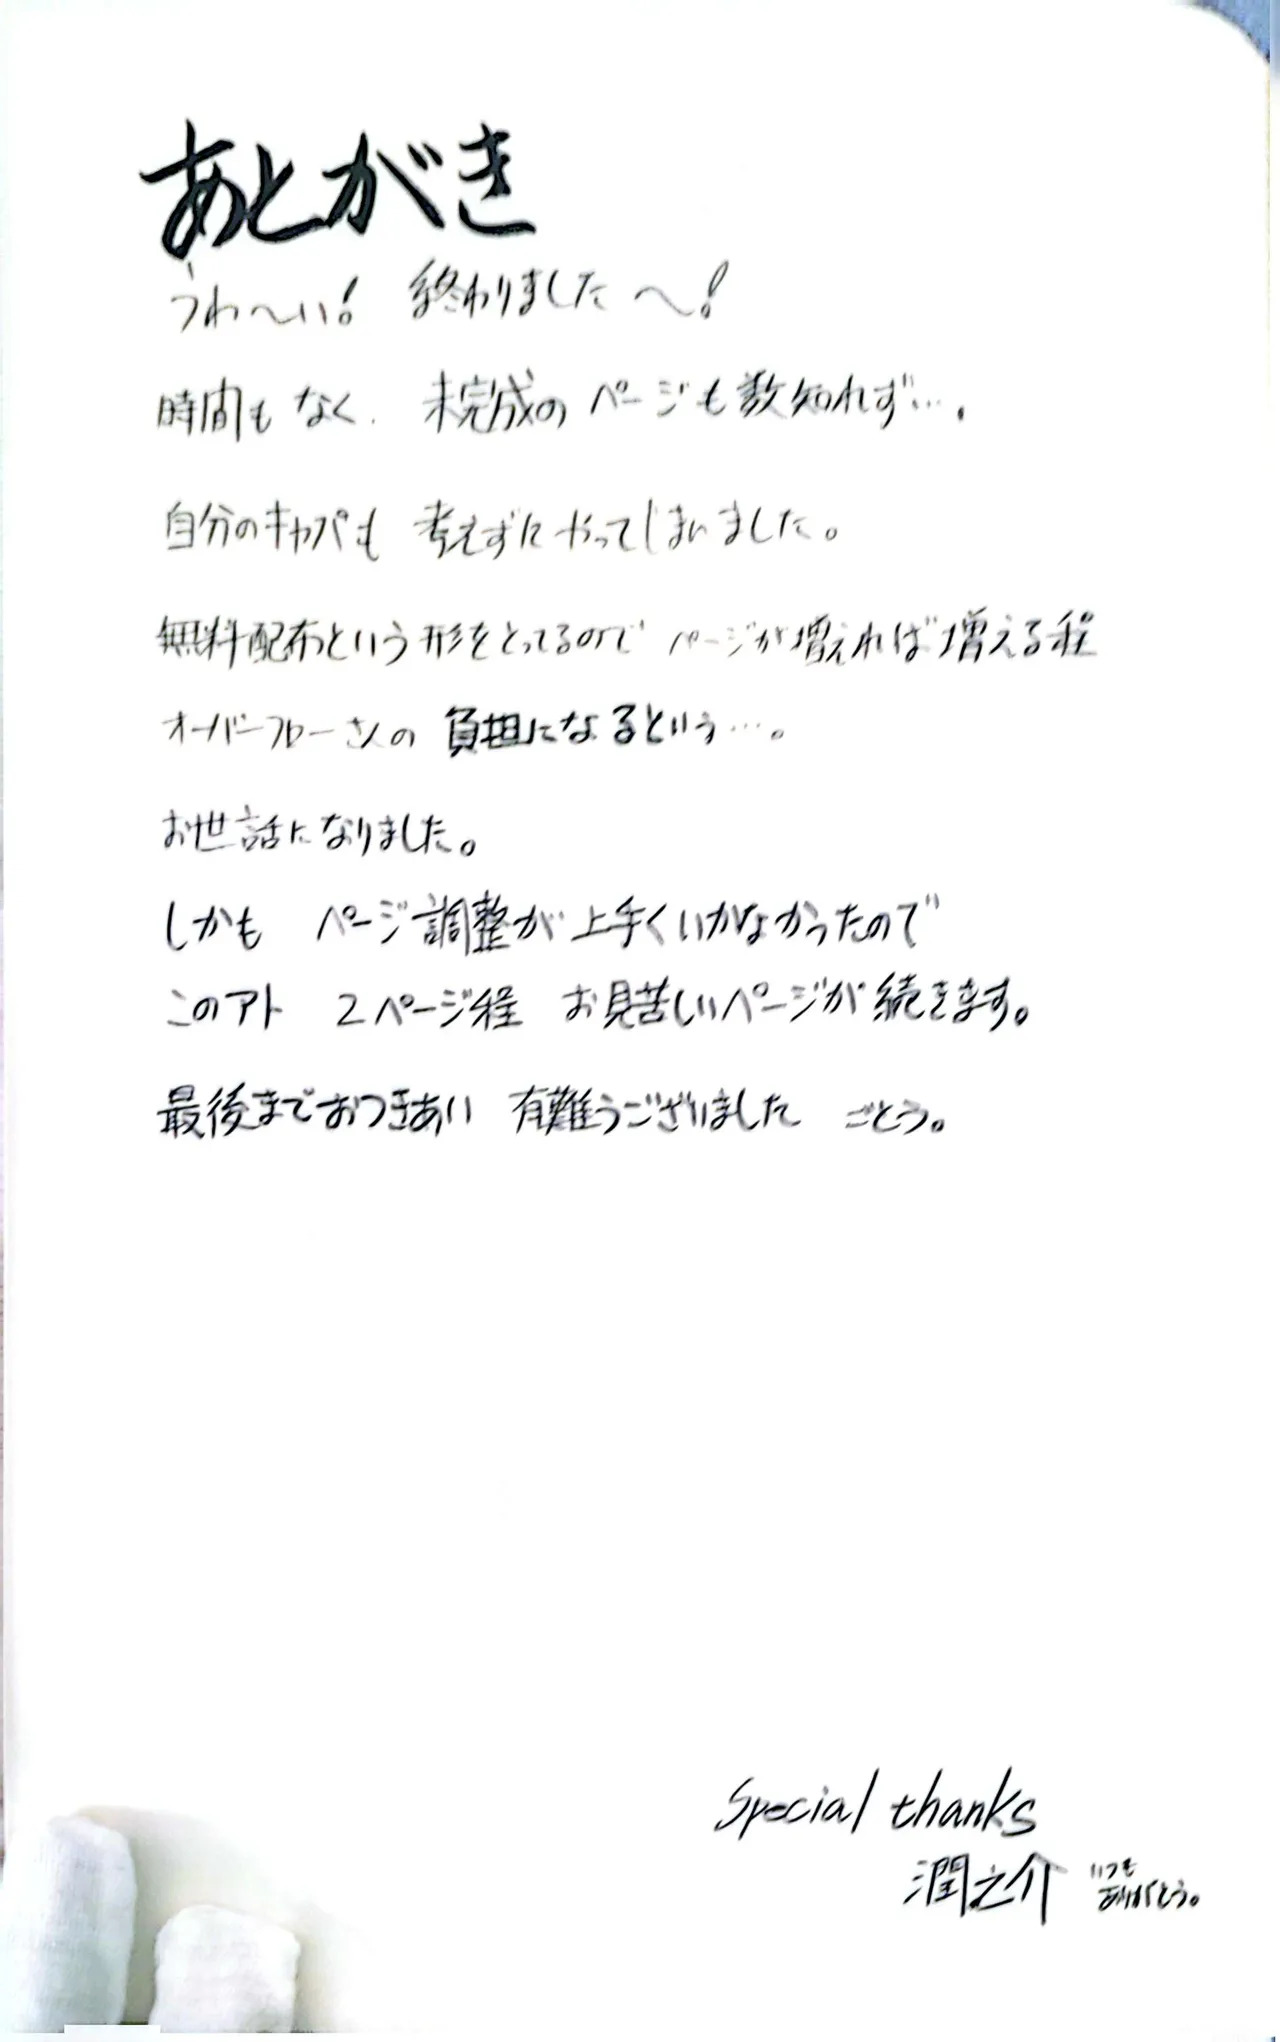 あとがき
うわ～い! 終わりました～!
時間もなく、未完成のページも数知れず…。
自分のキャパも 考えずにやってしまいました。
無料配布という形をとってるので ページが増えれば増える程
オーバーフローさんの 負担になるという…。
お世話になりました。
しかも ページ調整が上手くいかなかったので
このアト 2ページ程 お見苦しいページが続きます。
最後までおつきあい 有難うございました ごとう。
Special thanks
潤之介 いつも
ありがとう。